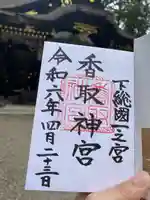 下総國一之宮
香取神宮
令和六年四月二十三日